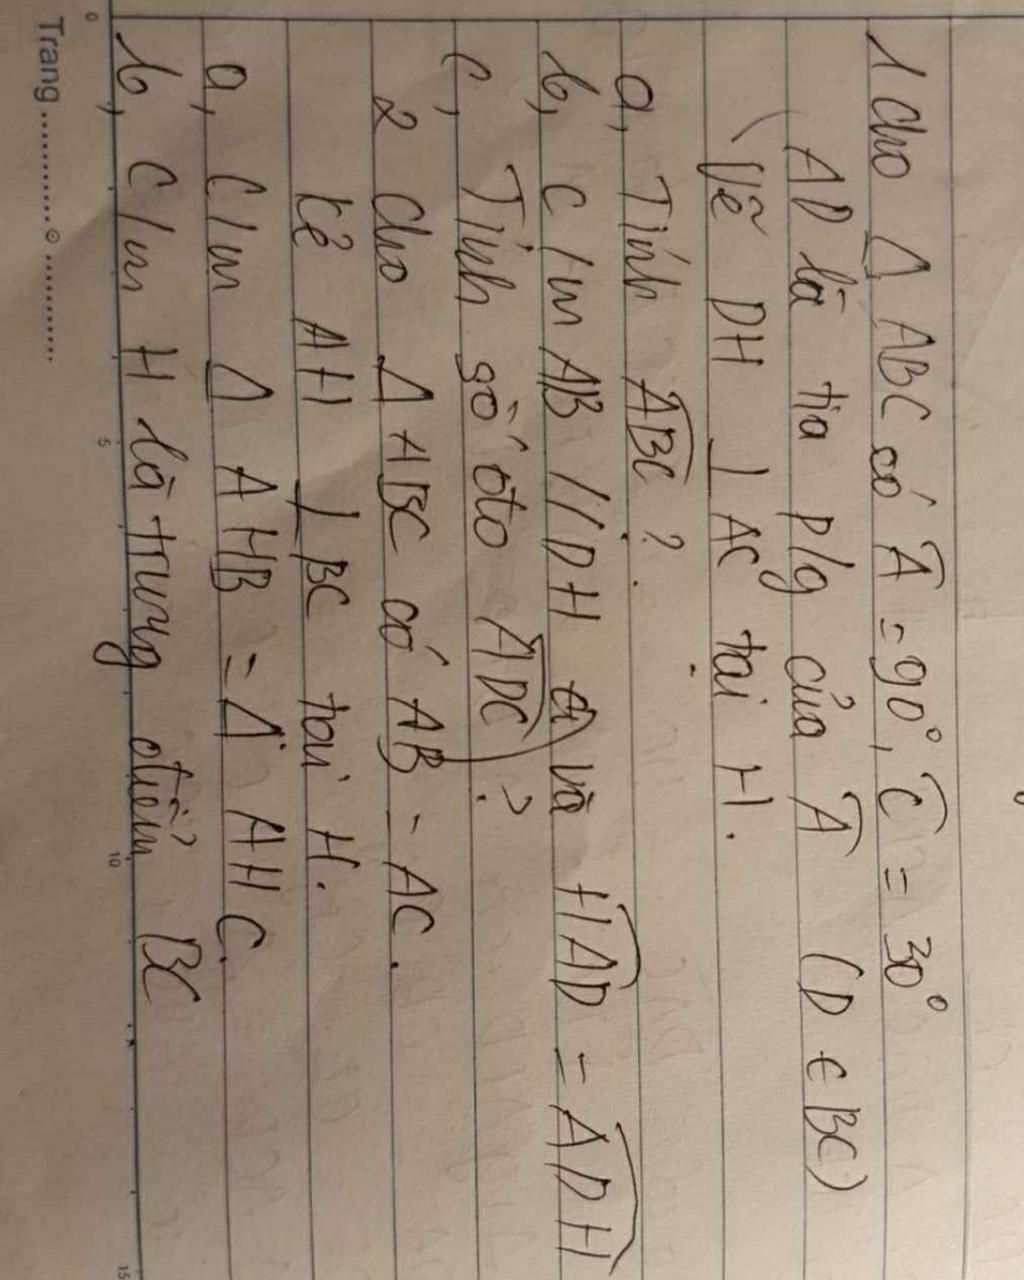 1 Cho Δ ABC có Â = 90°, Ĉ = 30°
AD là tia p/g của Â (D ∈ BC)
Vẽ DH ⊥ AC tại H.
a, Tính ABC ?
b, C/m AB // DH và HAD = ADH
c, Tính số đo ADC ?
2 Cho Δ ABC có AB = AC.
Kẻ AH ⊥ BC tại H.
a, C/m Δ AHB = Δ AHC.
b, C/m H là trung điểm BC
Trang
0 5 10 15